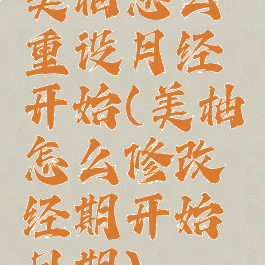 美柚怎么
重设月经
开始(美柚
怎么修改
经期开始
日期)